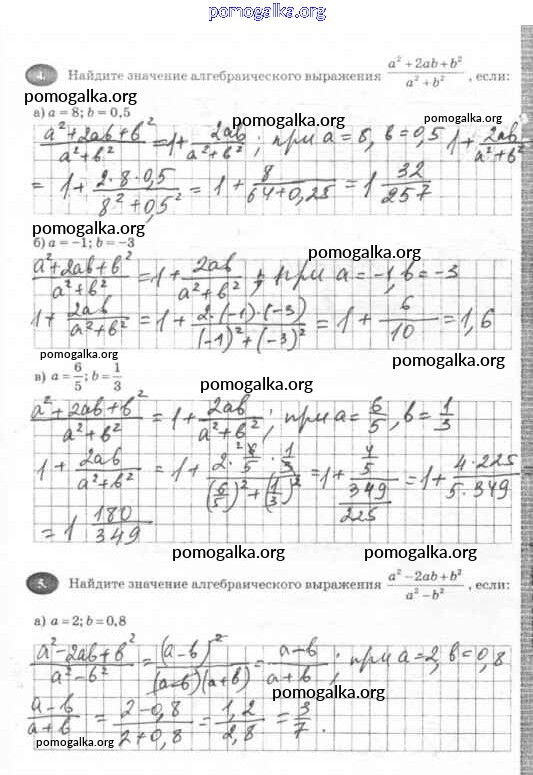 pomogalka.org
4. Найдите значение алгебраического выражения (a² + 2ab + b²)/(a² + b²), если:
pomogalka.org
а) a = 8; b = 0,5
pomogalka.org
(a² + 2ab + b²)/(a² + b²) = 1 + 2ab/(a² + b²); при a = 8, b = 0,5 1 + 2ab/(a² + b²)
= 1 + (2·8·0,5)/(8² + 0,5²) = 1 + 8/(64 + 0,25) = 1 32/257
pomogalka.org
б) a = −1; b = −3
pomogalka.org
(a² + 2ab + b²)/(a² + b²) = 1 + 2ab/(a² + b²); при a = −1, b = −3
1 + 2ab/(a² + b²) = 1 + (2·(−1)·(−3))/((−1)² + (−3)²) = 1 + 6/10 = 1,6
pomogalka.org
pomogalka.org
в) a = 6/5; b = 1/3
pomogalka.org
(a² + 2ab + b²)/(a² + b²) = 1 + 2ab/(a² + b²); при a = 6/5, b = 1/3
1 + 2ab/(a² + b²) = 1 + (2·6/5·1/3)/((6/5)² + (1/3)²) = 1 + (4/5)/(349/225) = 1 + (4·225)/(5·349)
= 1 180/349
pomogalka.org
pomogalka.org
5. Найдите значение алгебраического выражения (a² − 2ab + b²)/(a² − b²), если:
а) a = 2; b = 0,8
(a² − 2ab + b²)/(a² − b²) = (a − b)²/((a − b)(a + b)) = (a − b)/(a + b); при a = 2, b = 0,8
pomogalka.org
(a − b)/(a + b) = (2 − 0,8)/(2 + 0,8) = 1,2/2,8 = 3/7.
pomogalka.org